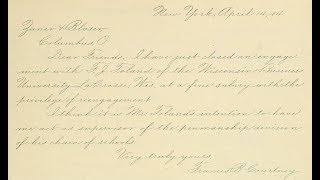 New York, April 14, 04
Zaner & Bloser
Columbus, O.
Dear Friends, I have just closed an engage-
ment with F. J. Toland of the Wisconsin Business
University La Crosse, Wis. at a fine salary with the
privilege of reengagement.
I think it is Mr. Toland's intention to have
me act as supervisor of the penmanship division
of his chain of schools.
Very truly yours,
Francis B. Courtney